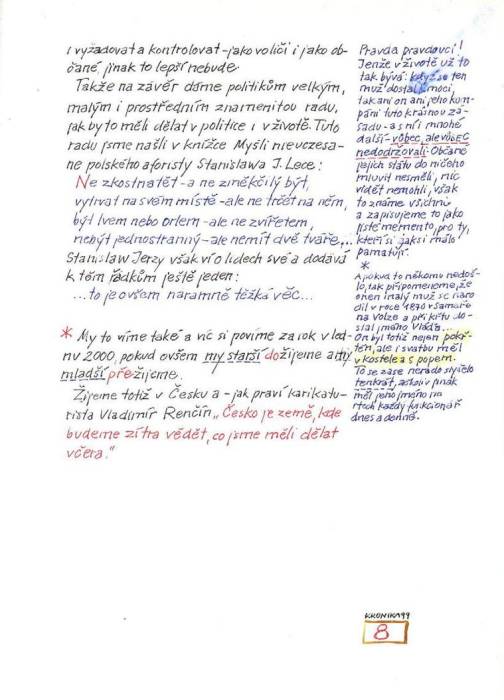 i vyžadovat a kontrolovat - jako voliči i jako ob-
čané, jinak to lepší nebude.
Takže na závěr dáme politikům velkým,
malým i prostředním znamenitou radu,
jak by to měli dělat v politice i v životě. Tuto
radu jsme našli v knížce Myšli neuczesa-
ne polského aforisty Stanislawa J. Lece:
Ne zkostnatět - a ne změkčilý být,
vytrvat na svém místě - ale ne trčet na něm,
být lvem nebo orlem - ale ne zvířetem,
nebýt jednostranný - ale nemít dvě tváře...
Stanislaw Jerzy však ví o lidech své a dodává
k těm řádkům ještě jeden:
...to je ovšem náramně těžká věc...
* My to víme také a víc si povíme za rok v led-
nu 2000, pokud ovšem my starší dožijeme a my
mladší přežijeme.
Žijeme totiž v Česku a - jak praví karikatu-
rista Vladimír Renčín „Česko je země, kde
budeme zítra vědět, co jsme měli dělat
včera."
Pravda pravdoucí!
Jenže v životě už to
tak bývá: když se ten
muž dostal k moci,
tak ani on ani jeho kum-
páni tuto krásnou zá-
sadu - a s ní i mnohé
další - vůbec, ale vůbec
nedodržovali. Občané
jejich státu do ničeho
mluvit nesměli, nic
vidět nemohli, však
to známe všichni
a zapisujeme to jako
jisté memento pro ty,
kteří si jaksi málo
pamatují.
*
A pokud to někomu nedoš-
lo, tak připomeneme, že
onen malý muž se naro
dil v roce 1870 v Samaře
na Volze a při křtu do-
stal jméno Vláďa.
On byl totiž nejen pokř-
těn, ale i svatbu měl
v kostele a s popem.
To se zase nerado slyšelo
tenkrát, ačkoliv jinak
měl jeho jméno na
rtech každý funkcionář
dnes a denně.
KRONIKA 99
8